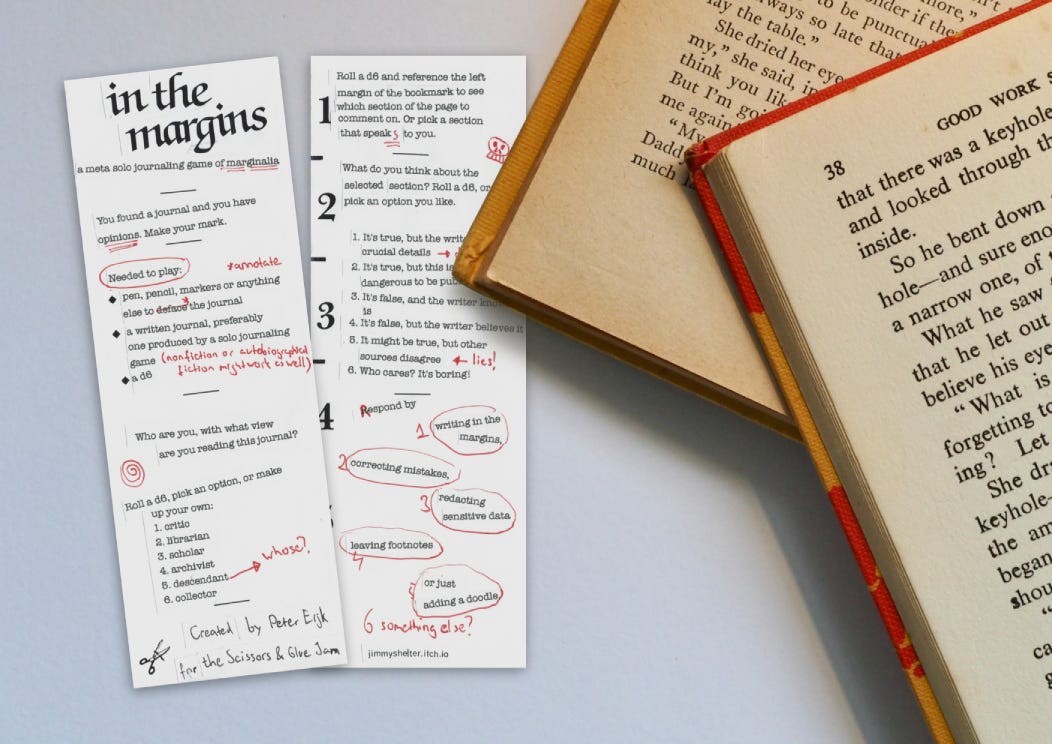 in the
margins
a meta solo journaling game of marginalia
You found a journal and you have
opinions. Make your mark.
Needed to play:
*annotate
pen, pencil, markers or anything
else to deface the journal
*
a written journal, preferably
one produced by a solo journaling
game (nonfiction or autobiographical
fiction might work as well)
a d6
Who are you, with what view
are you reading this journal?
Roll a d6, pick an option, or make
up your own:
1. critic
2. librarian
3. scholar
4. archivist
5. descendant
whose?
6. collector
Created by Peter Eijk
for the Scissors & Glue Jam
1
Roll a d6 and reference the left
margin of the bookmark to see
which section of the page to
comment on. Or pick a section
that speaks to you.
2
What do you think about the
selected section? Roll a d6, or
pick an option you like.
1. It's true, but the
crucial details
2. It's true, but this is
dangerous to be
3
3. It's false, and the writer
is
4. It's false, but the writer believes it
5. It might be true, but other
sources disagree lies!
6. Who cares? It's boring!
4
Respond by
1 writing in the
margins,
2 correcting mistakes,
3 redacting
sensitive data
leaving footnotes
4
5 or just
adding a doodle
6 something else?
jimmyshelter.itch.io
more,"
if they
to be
always so late that
lay the table."
She dried her eye
my," she said, in
think you
But I'm
me again
"My
Dadd
much
GOOD WORK
38
that there was a keyhole
and looked through
inside.
So he bent down
hole—and sure
a narrow one, of
What he saw
that he let out
believe his eye
"What is
forgetting to
ing? Let
She
keyhole
the
began
"
ca